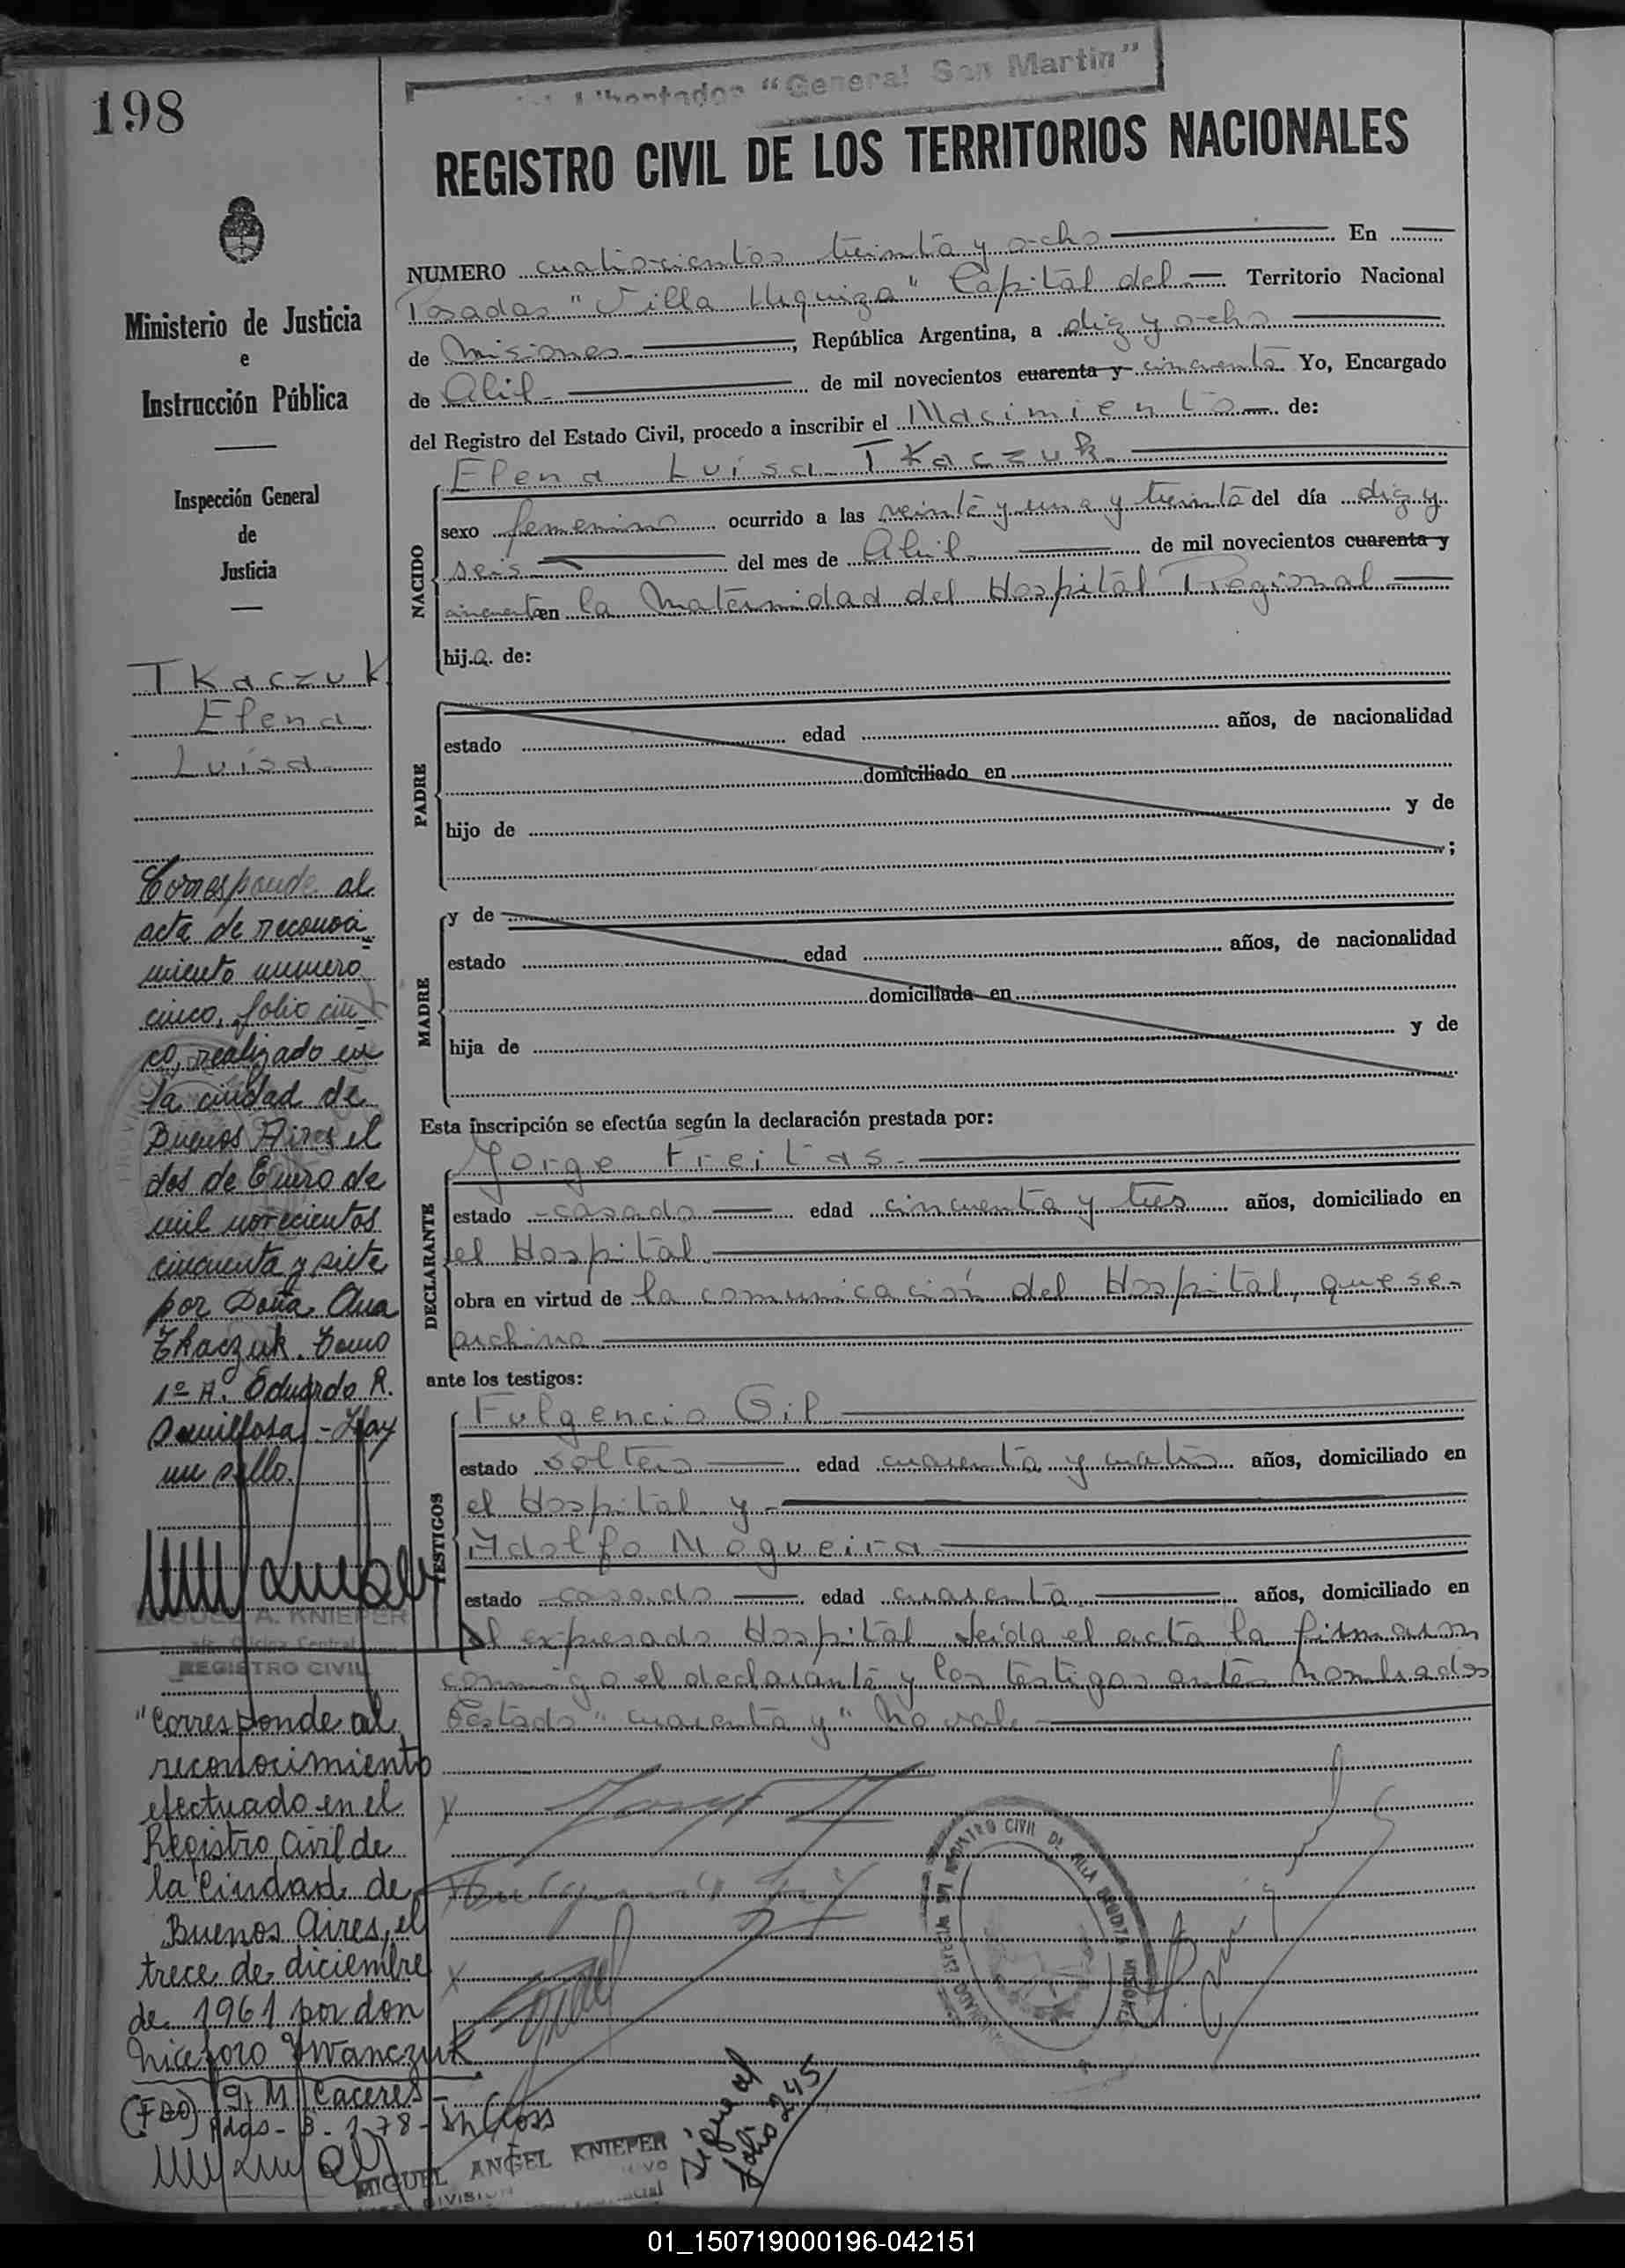 198
Libertador "General San Martin"
REGISTRO CIVIL DE LOS TERRITORIOS NACIONALES
Ministerio de Justicia
e
Instrucción Pública
Inspección General
de
Justicia
NUMERO cuatrocientos treinta y ocho En
Posadas "Villa Urquiza" Capital del Territorio Nacional
de Misiones, República Argentina, a diez y ocho
de Abril de mil novecientos cuarenta y cincuenta Yo, Encargado
del Registro del Estado Civil, procedo a inscribir el Nacimiento de:
NACIDO
Elena Luisa Tkaczuk
sexo femenino ocurrido a las veinte y una y treinta del día diez y
seis del mes de Abril de mil novecientos cuarenta y
cincuenta en la Maternidad del Hospital Regional
hija de:
PADRE
estado edad años, de nacionalidad
domiciliado en
hijo de y de
;
MADRE
y de
estado edad años, de nacionalidad
domiciliada en
hija de y de
Esta inscripción se efectúa según la declaración prestada por:
DECLARANTE
Jorge Freitas
estado casado edad cincuenta y tres años, domiciliado en
el Hospital
obra en virtud de la comunicación del Hospital, que se
archiva
ante los testigos:
TESTIGOS
Fulgencio Gil
estado soltero edad cuarenta y cuatro años, domiciliado en
el Hospital y
Adolfo Nogueira
estado casado edad cuarenta años, domiciliado en
el expresado Hospital leída el acta la firmaron
conmigo el declarante y los testigos antes nombrados
Testado "cuarenta y" No vale
Tkaczuk
Elena
Luisa
Corresponde al
acta de reconoci
miento numero
cinco, folio cin
co, realizado en
la ciudad de
Buenos Aires el
dos de Enero de
mil novecientos
cincuenta y siete
por Doña Ana
Tkaczuk. Tomo
1º A. Eduardo R.
- Hay
un sello.
A. KNIEPER
Oficina Central
REGISTRO CIVIL
"Corresponde al
reconocimiento
efectuado en el
Registro Civil de
la Ciudad de
Buenos Aires, el
trece de diciembre
de 1961 por don
Niceforo Ywanczuk
(FDO) G. M. Caceres
Pdas- 3-1-78-
MIGUEL ANGEL KNIEPER
DIVISION
Sigue al
folio 245
REGISTRO CIVIL DE VILLA URQUIZA MISIONES
01_150719000196-042151